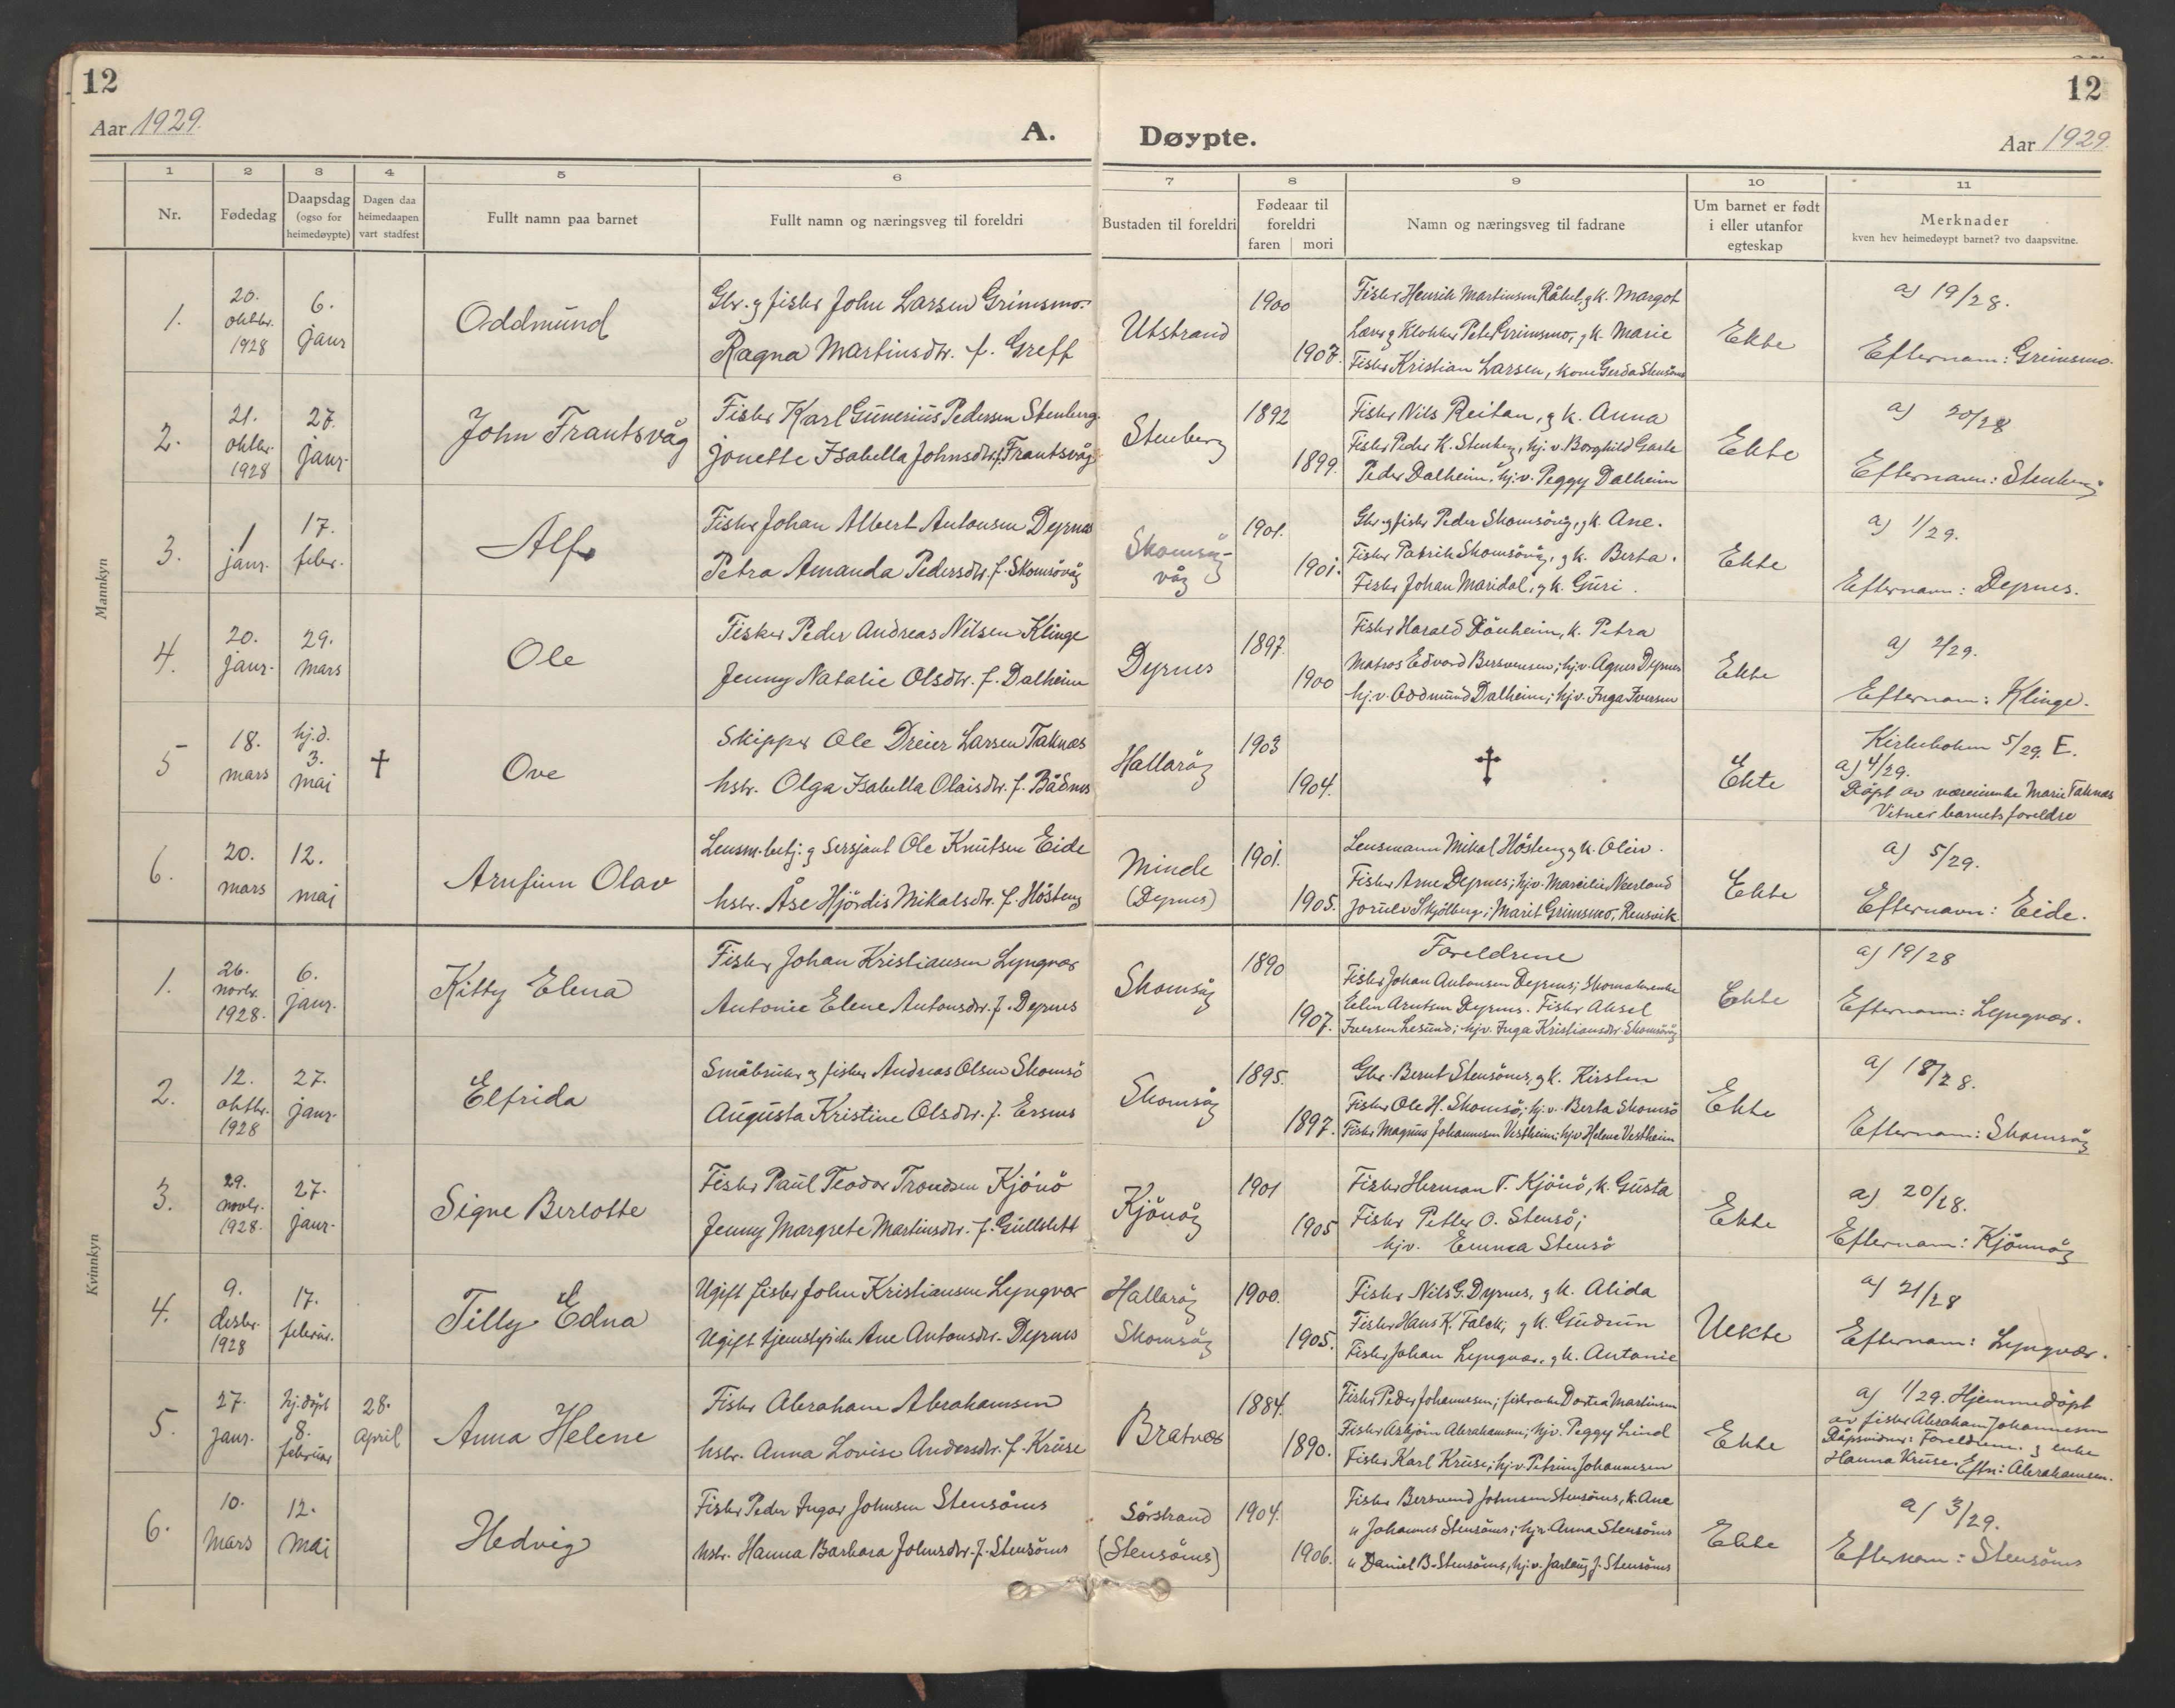 12
12
Aar 1929.
A.
Døypte.
Aar 1929.
1 2 3 4 5 6 7 8 9 10 11
Nr.
Fødedag
Daapsdag
(ogso for
heimedøypte)
Dagen daa
heimedaapen
vart stadfest
Fullt namn paa barnet
Fullt namn og næringsveg til foreldri
Bustaden til foreldri
Fødeaar til
foreldri
faren mori
Namn og næringsveg til fadrane
Um barnet er født
i eller utanfor
egteskap
Merknader
kven hev heimedøypt barnet? tvo daapsvitne.
Mankyn
1.
20.
oktbr.
1928
6.
janr
Oddmund
Gbr. g fisker John Larsen Grimsmo.
Ragna Martinsdtr. f. Greff
Utstrand
1900
1907.
Fisker Henrik Martinsen Råket, g k. Margot
Lærer g Klokker Peter Grimsmo, g k. Marie
Fisker Kristian Larsen, kone Gerda Stensönes
Ekte
a) 19/28.
Efternam: Grimsmo.
2.
21.
oktbr.
1928
27.
janr.
John Frantsvåg
Fisker Karl Gunerius Pedersen Stenberg.
Jonette Isabella Johnsdtr. f. Frantsvåg
Stenberg
1892
1899.
Fisker Nils Reitan, g k. Anna
Fisker Peder K. Stenberg, hj. v. Borghild Garte
Peder Dalheim, hj. v. Peggy Dalheim
Ekte
a) 20/28
Efternavn: Stenberg
3.
1
janr.
17.
febr.
Alf
Fisker Johan Albert Antonsen Dyrnes
Petra Amanda Pedersdtr. f. Skomsövåg
Skomsöy-
våg
1901.
1901.
Gbr. g fisker Peder Skomsövåg, g k. Ane.
Fisker Patrik Skomsövåg, g k. Berta.
Fisker Johan Maridal, g k. Guri.
Ekte
a) 1/29.
Efternavn: Dyrnes.
4.
20.
janr.
29.
mars
Ole
Fisker Peder Andreas Nilsen Klinge
Jenny Natalie Olsdtr. f. Dalheim
Dyrnes
1897.
1900
Fisker Harald Dönheim, k. Petra
Matros Edvard Bersvensen; hj.v. Agnes Dyrnes
hj.v. Oddmund Dalheim; hj.v. Inga Iversen
Ekte
a) 2/29.
Efternam: Klinge.
5
18.
mars
hj.d.
3.
mai
†
Ove
Skipper Ole Dreier Larsen Taknes
hstr. Olga Isabella Olaisdtr. f. Bådnes
Hallaröy
1903
1904.
†
Ekte
Kirkeboken 5/29. E.
a) 4/29.
Döpt av Marie Taknæs
Vitner barnets foreldre
6.
20.
mars
12.
mai
Arnfinn Olav
Lensm. betj. g Sersjant Ole Knutsen Eide
hstr. Åse Hjördis Mikalsdtr. f. Hösteng
Minde
(Dyrnes)
1901.
1905.
Lensmann Mikal Hösteng g k. Oleiv.
Fisker Arne Dyrnes; hj.v. Marcilie Neerland
Jorulv Skjölberg; Marit Grimsmo, Rensvik
Ekte
a) 5/29.
Efternavn: Eide.
Kvinnkyn
1.
26.
novbr.
1928.
6.
janr.
Kitty Elena
Fisker Johan Kristiansen Lyngvær
Antonie Elene Antonsdtr. f. Dyrnes
Skomsöy
1890
1907.
Foreldrene
Fisker Johan Antonsen Dyrnes;
Elen Arntsen Dyrnes. Fisker Aksel
Iversen Lesund; hj.v. Inga Kristiansdtr. Skomsövåg
Ekte
a) 19/28
Efternam: Lyngvær.
2.
12.
oktbr.
1928
27.
janr.
Elfrida
Småbruker og fisker Andreas Olsen Skomsö
Augusta Kristine Olsdtr. f. Ersnes
Skomsöy
1895.
1897.
Gbr. Bernt Stensönes, g k. Kirsten
Fisker Ole H. Skomsö; hj.v. Berta Skomsö
Fisker Magnus Johannesen Vestheim; hj.v. Helene Vestheim
Ekte
a) 18/28.
Efternam: Skomsöy
3.
29.
novbr.
1928.
27.
janr.
Signe Berlotte
Fisker Paul Teodor Trondsen Kjönö
Jenny Margrete Martinsdtr. f. Gullslett
Kjönöy
1901
1905
Fisker Herman T. Kjönö, k. Gusta
Fisker Petter O. Stensö;
hj.v. Emma Stensö
Ekte
a) 20/28.
Efternam: Kjönnöy
4.
9.
desbr.
1928
17.
februr.
Tilly Edna
Ugift fisker John Kristiansen Lyngvær
Ugift tjenestepike Ane Antonsdtr. Dyrnes
Hallaröy
Skomsöy
1900.
1905.
Fisker Nils G. Dyrnes, g k. Alida
Fisker Hans K. Falck, g k. Gudrun
Fisker Johan Lyngvær, g k. Antonie
Uekte
a) 21/28
Efternam: Lyngvær.
5.
27.
janr.
hj.döpt
8.
februar
28.
April
Anna Helene
Fisker Abraham Abrahamsen
hstr. Anna Lovise Andersdtr. f. Kruse
Bratvær
1884.
1890.
Fisker Peder Johannesen; fiskerenke Dortea Martinsen
Fisker Asbjörn Abrahamsen; hj.v. Peggy Lind
Fisker Karl Kruse; hj.v. Petrine Johannesen
Ekte
a) 1/29. Hjemmedöpt
av fisker Abraham Johannesen
Dåpsvidner: Foreldrene. g enke
Hanna Kruse. Eftn: Abrahamsen.
6.
10.
Mars
12.
Mai
Hedvig
Fisker Peder Ingar Johnsen Stensönes
hstr. Hanna Barbara Johnsdtr. f. Stensönes
Sörstrand
(Stensönes)
1904.
1906.
Fisker Bersvend Johnsen Stensönes, k. Ane
" Johannes Stensönes; hj.v. Anna Stensönes
" Daniel B. Stensönes, hj.v. Jarlaug J. Stensönes
Ekte
a) 3/29.
Efternam: Stensönes